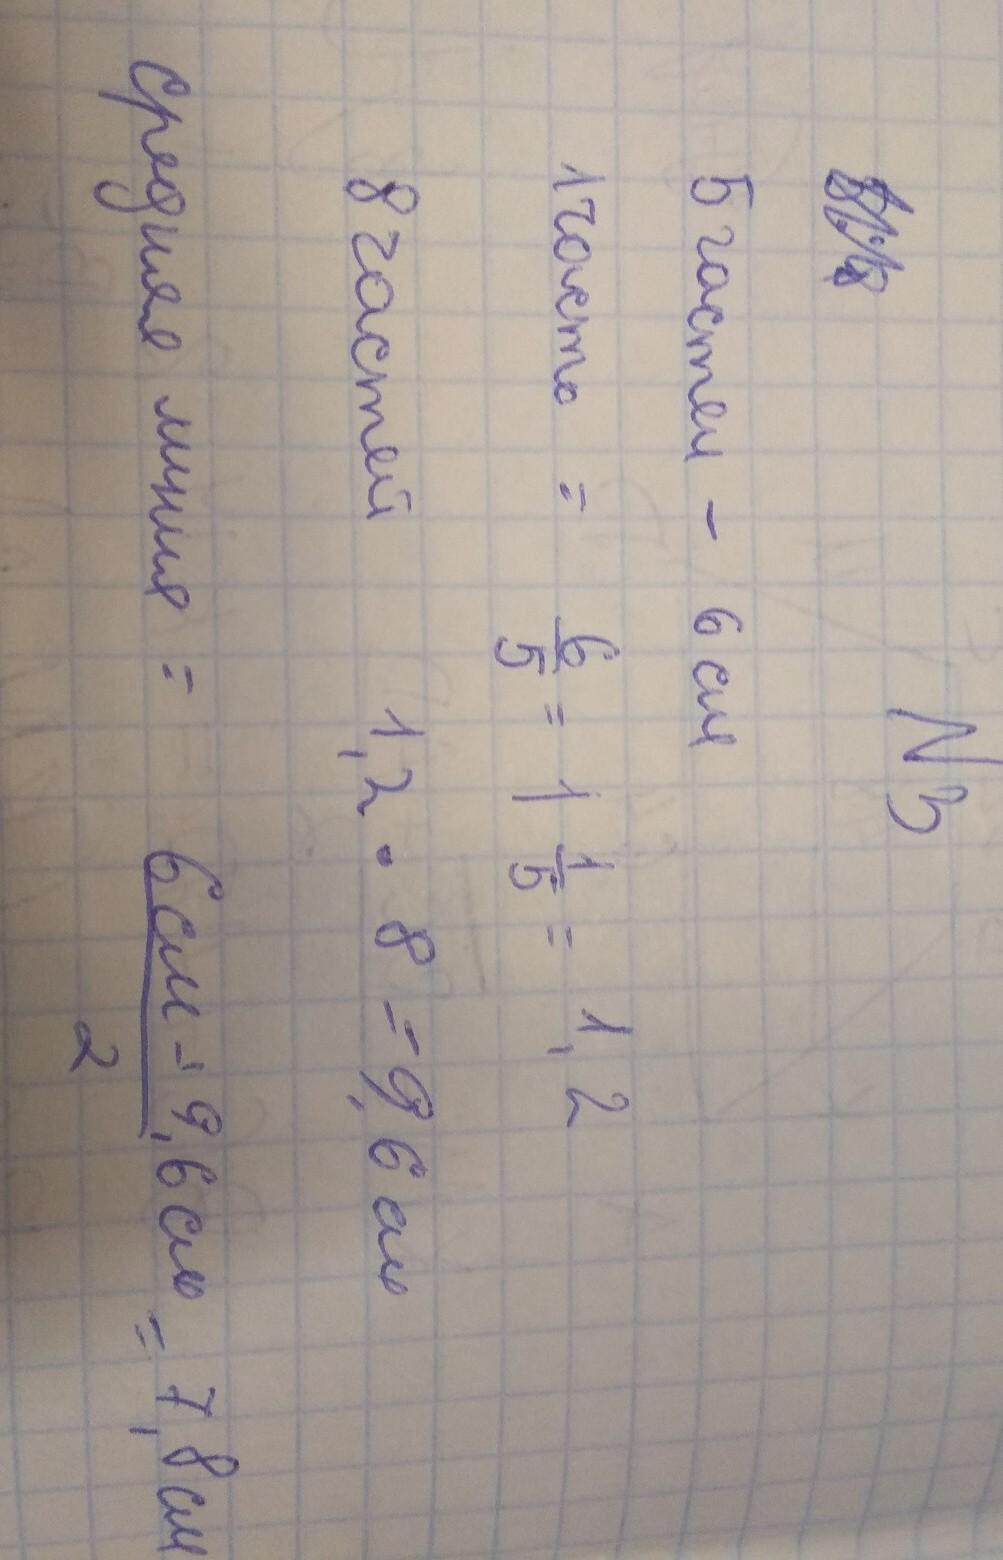 N 3
5 частей - 6 см
1 часть = 6/5 = 1 1/5 = 1,2
8 частей 1,2 • 8 = 9,6 см
Средняя линия = 6 см + 9,6 см / 2 = 7,8 см